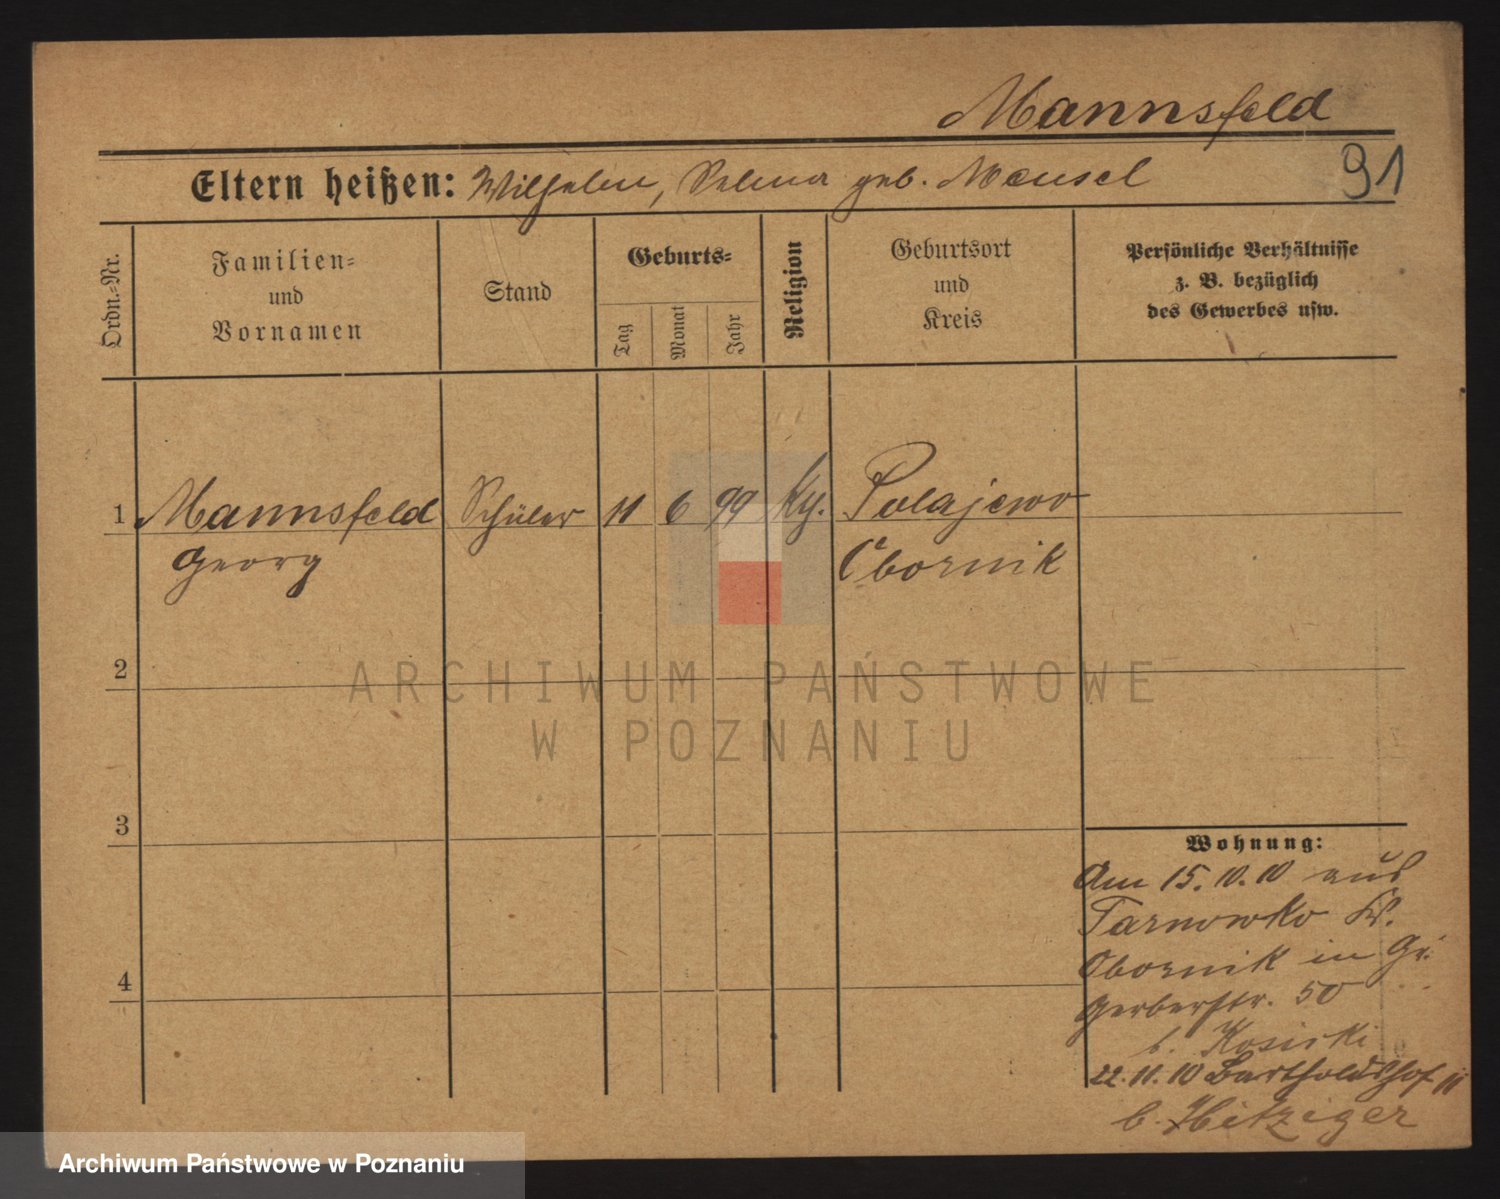 Mannsfeld
Eltern heißen: Wilhelm, Selma geb. Mensel
91
Ordn.=Nr.
Familien=
und
Vornamen
Stand
Geburts=
Tag
Monat
Jahr
Religion
Geburtsort
und
Kreis
Persönliche Verhältnisse
z. B. bezüglich
des Gewerbes usw.
1 Mannsfeld Schüler 11 6 99 Polajewo
Georg Obornik
2
ARCHIWUM PAŃSTWOWE
W POZNANIU
3
4
Wohnung:
Am 15.10.10 aus
Tarnowko Kr.
Obornik in Gr.
Gerberstr. 50
b. Kosicki
22.11.10 Bartholdshof 11
b. Hitziger
Archiwum Państwowe w Poznaniu